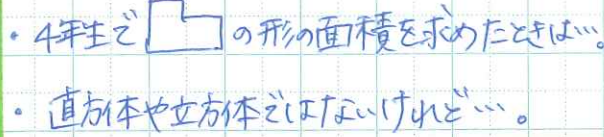 ・4年生で の形の面積を求めたときは…。
・直方体や立方体ではないけれど…。